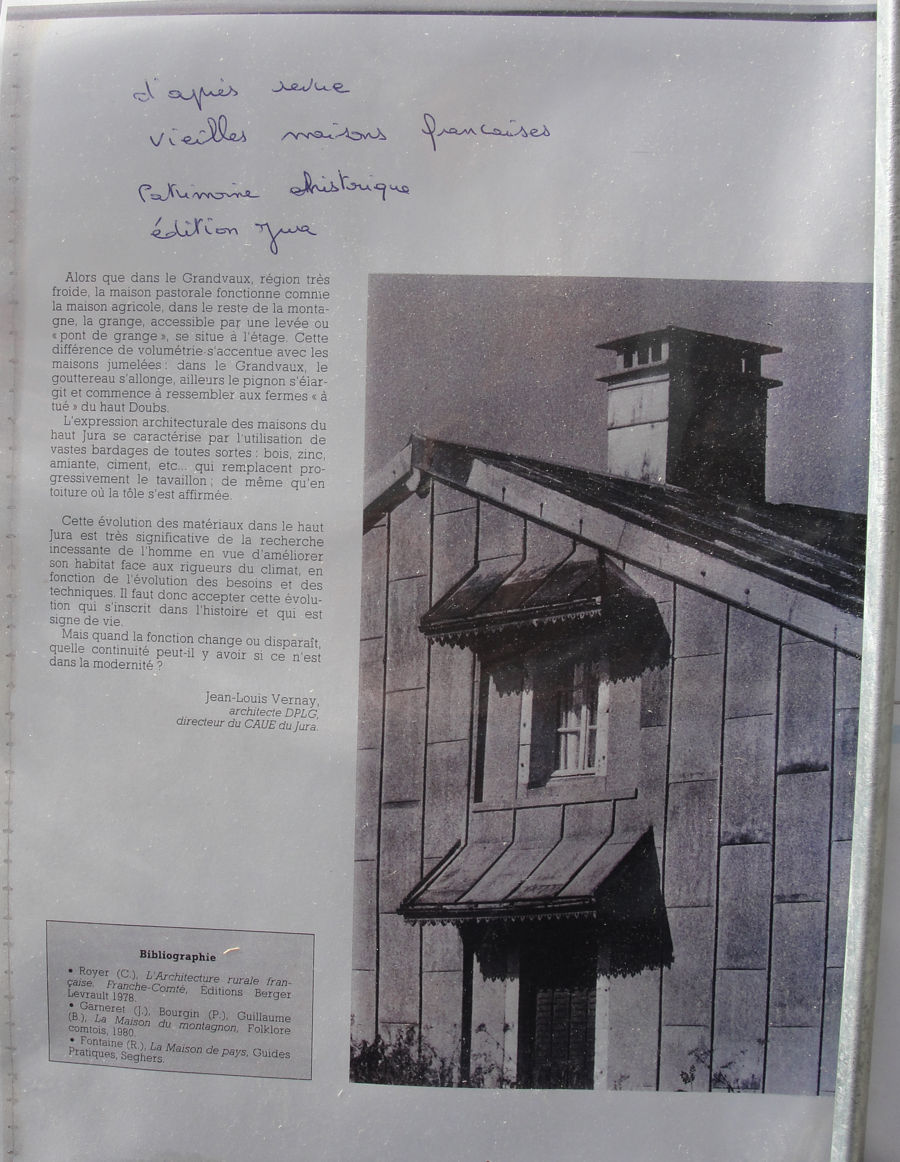 d'après revue
vieilles maisons françaises
Patrimoine historique
édition Jura
Alors que dans le Grandvaux, région très
froide, la maison pastorale fonctionne comme
la maison agricole, dans le reste de la monta-
gne, la grange, accessible par une levée ou
« pont de grange », se situe à l'étage. Cette
différence de volumétrie s'accentue avec les
maisons jumelées : dans le Grandvaux, le
gouttereau s'allonge, ailleurs le pignon s'élar-
git et commence à ressembler aux fermes « à
tué » du haut Doubs.
L'expression architecturale des maisons du
haut Jura se caractérise par l'utilisation de
vastes bardages de toutes sortes : bois, zinc,
amiante, ciment, etc... qui remplacent pro-
gressivement le tavaillon ; de même qu'en
toiture où la tôle s'est affirmée.
Cette évolution des matériaux dans le haut
Jura est très significative de la recherche
incessante de l'homme en vue d'améliorer
son habitat face aux rigueurs du climat, en
fonction de l'évolution des besoins et des
techniques. Il faut donc accepter cette évolu-
tion qui s'inscrit dans l'histoire et qui est
signe de vie.
Mais quand la fonction change ou disparaît,
quelle continuité peut-il y avoir si ce n'est
dans la modernité ?
Jean-Louis Vernay,
architecte DPLG,
directeur du CAUE du Jura.
Bibliographie
• Royer (C.), L'Architecture rurale fran-
çaise. Franche-Comté, Éditions Berger
Levrault 1978.
• Garneret (J.), Bourgin (P.), Guillaume
(B.), La Maison du montagnon, Folklore
comtois, 1980.
• Fontaine (R.), La Maison de pays, Guides
Pratiques, Seghers.